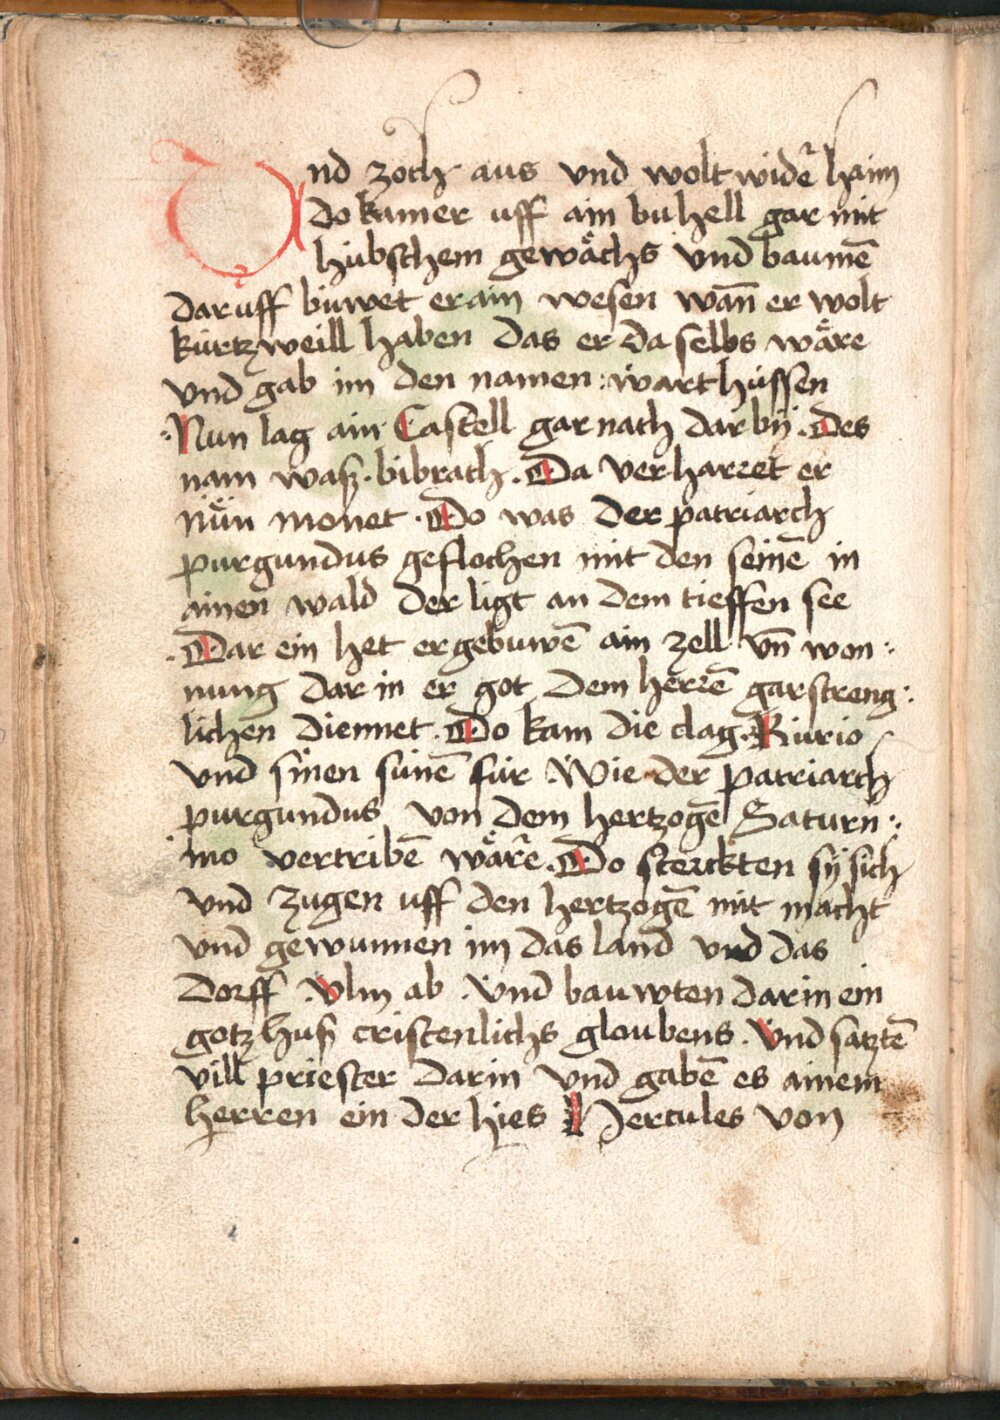 Vnd zoch aus vnd wolt wider̃ haim
do kamer uff ain buhell gar mit
hübschem gewaͤchs Vnd baumē
dar uff buwet er ain wesen wañ er wolt
kürtzweill haben das er da selbs waͤre
vnd gab im den namen : warthüssen
·Nun lag ain Castell gar nach dar bij · Des
nam wasz · bibrach · Da ver harret er
nuͤn monet · Do was der patriarch
purgundus geflochen mit den seinē in
ainen wald der ligt an dem tieffen see
· Dar ein het er gebuwē ain zell vñ won :
nung dar in er got dem herrē gar streng :
lichen diennet · Do kam die clag · Kurio
vnd sinen sünē für · Wie der patriarch
purgundus von dem hertzogē Saturn :
ino vertribē waͤr̃e · Do sterckten sij sich
vnd zugen uff den hertzogē mit macht
vnd gewunnen im das land vnd das
dorff · Vlm ab · Vnd bauwten darin ein
gotz husz cristenlichs gloubens · Vnd satztē
vill priester darin vnd gabē es ainem
herren ein der hies Hercules von